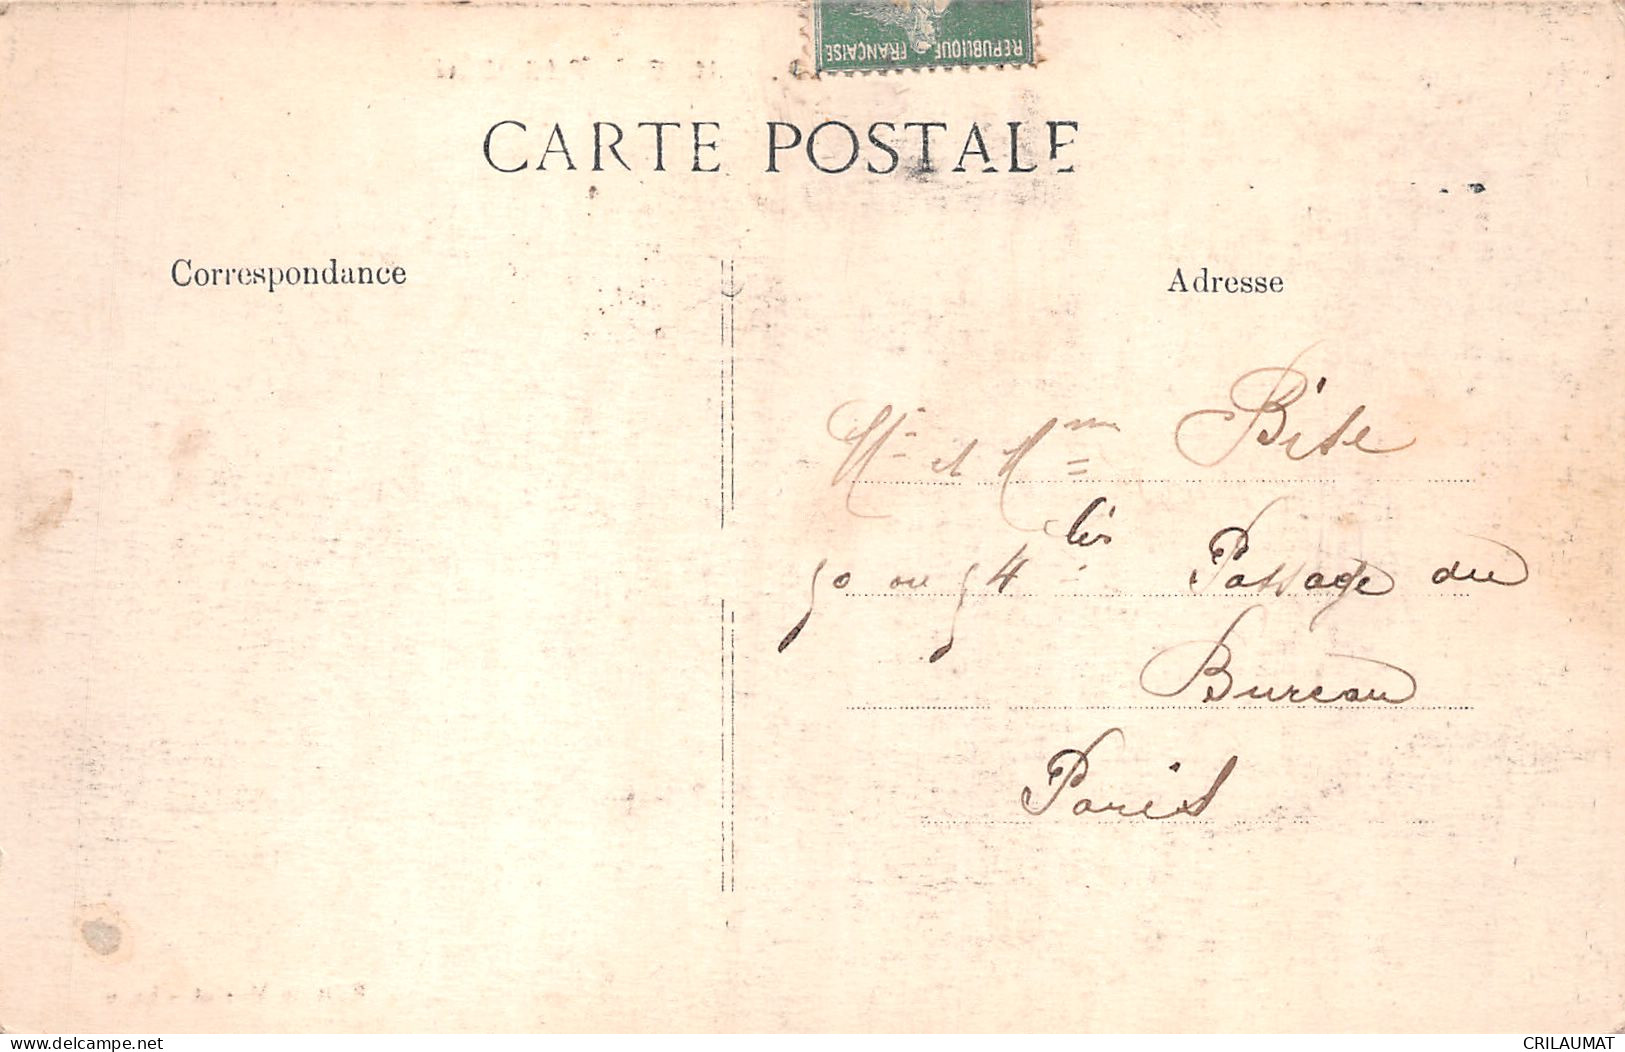 REPUBLIQUE FRANÇAISE
CARTE POSTALE
Correspondance
Adresse
Mr et Mme Bise
50 ou 54 bis Passage du
Bureau
Paris
www.delcampe.net
CRILAUMAT